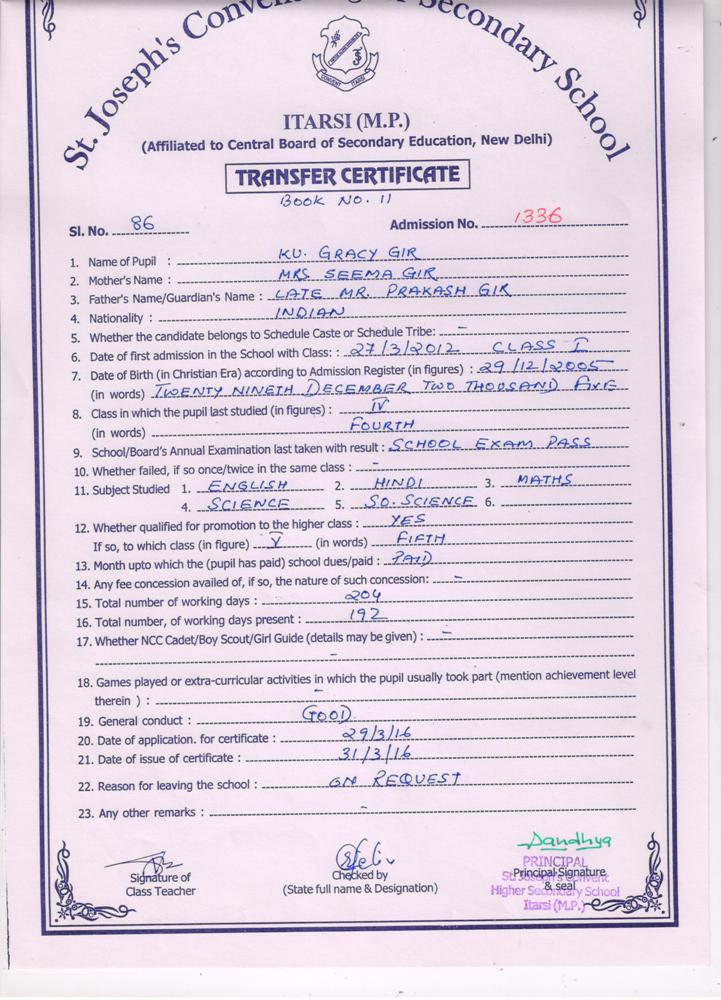 St. Joseph's Convent Secondary School
CONVENT ITARSI
ITARSI (M.P.)
(Affiliated to Central Board of Secondary Education, New Delhi)
TRANSFER CERTIFICATE
BOOK NO. 11
Sl. No. 86 Admission No. 1336
1. Name of Pupil : KU. GRACY GIR
2. Mother's Name : MRS SEEMA GIR
3. Father's Name/Guardian's Name : LATE MR. PRAKASH GIR
4. Nationality : INDIAN
5. Whether the candidate belongs to Schedule Caste or Schedule Tribe: –
6. Date of first admission in the School with Class: : 27/3/2012 CLASS I
7. Date of Birth (in Christian Era) according to Admission Register (in figures) : 29/12/2005
(in words) TWENTY NINETH DECEMBER TWO THOUSAND FIVE
8. Class in which the pupil last studied (in figures) : IV
(in words) FOURTH
9. School/Board's Annual Examination last taken with result : SCHOOL EXAM PASS
10. Whether failed, if so once/twice in the same class : –
11. Subject Studied 1. ENGLISH 2. HINDI 3. MATHS
4. SCIENCE 5. SO. SCIENCE 6.
12. Whether qualified for promotion to the higher class : YES
If so, to which class (in figure) V (in words) FIFTH
13. Month upto which the (pupil has paid) school dues/paid : PAID
14. Any fee concession availed of, if so, the nature of such concession: –
15. Total number of working days : 204
16. Total number, of working days present : 192
17. Whether NCC Cadet/Boy Scout/Girl Guide (details may be given) : –
–
18. Games played or extra-curricular activities in which the pupil usually took part (mention achievement level
therein ) : –
19. General conduct : GOOD
20. Date of application. for certificate : 29/3/16
21. Date of issue of certificate : 31/3/16
22. Reason for leaving the school : ON REQUEST
23. Any other remarks : –
Signature of
Class Teacher
Checked by
(State full name & Designation)
Sandhya
PRINCIPAL
St. Joseph's Convent
Higher Secondary School
Itarsi (M.P.)
Principal Signature
& seal